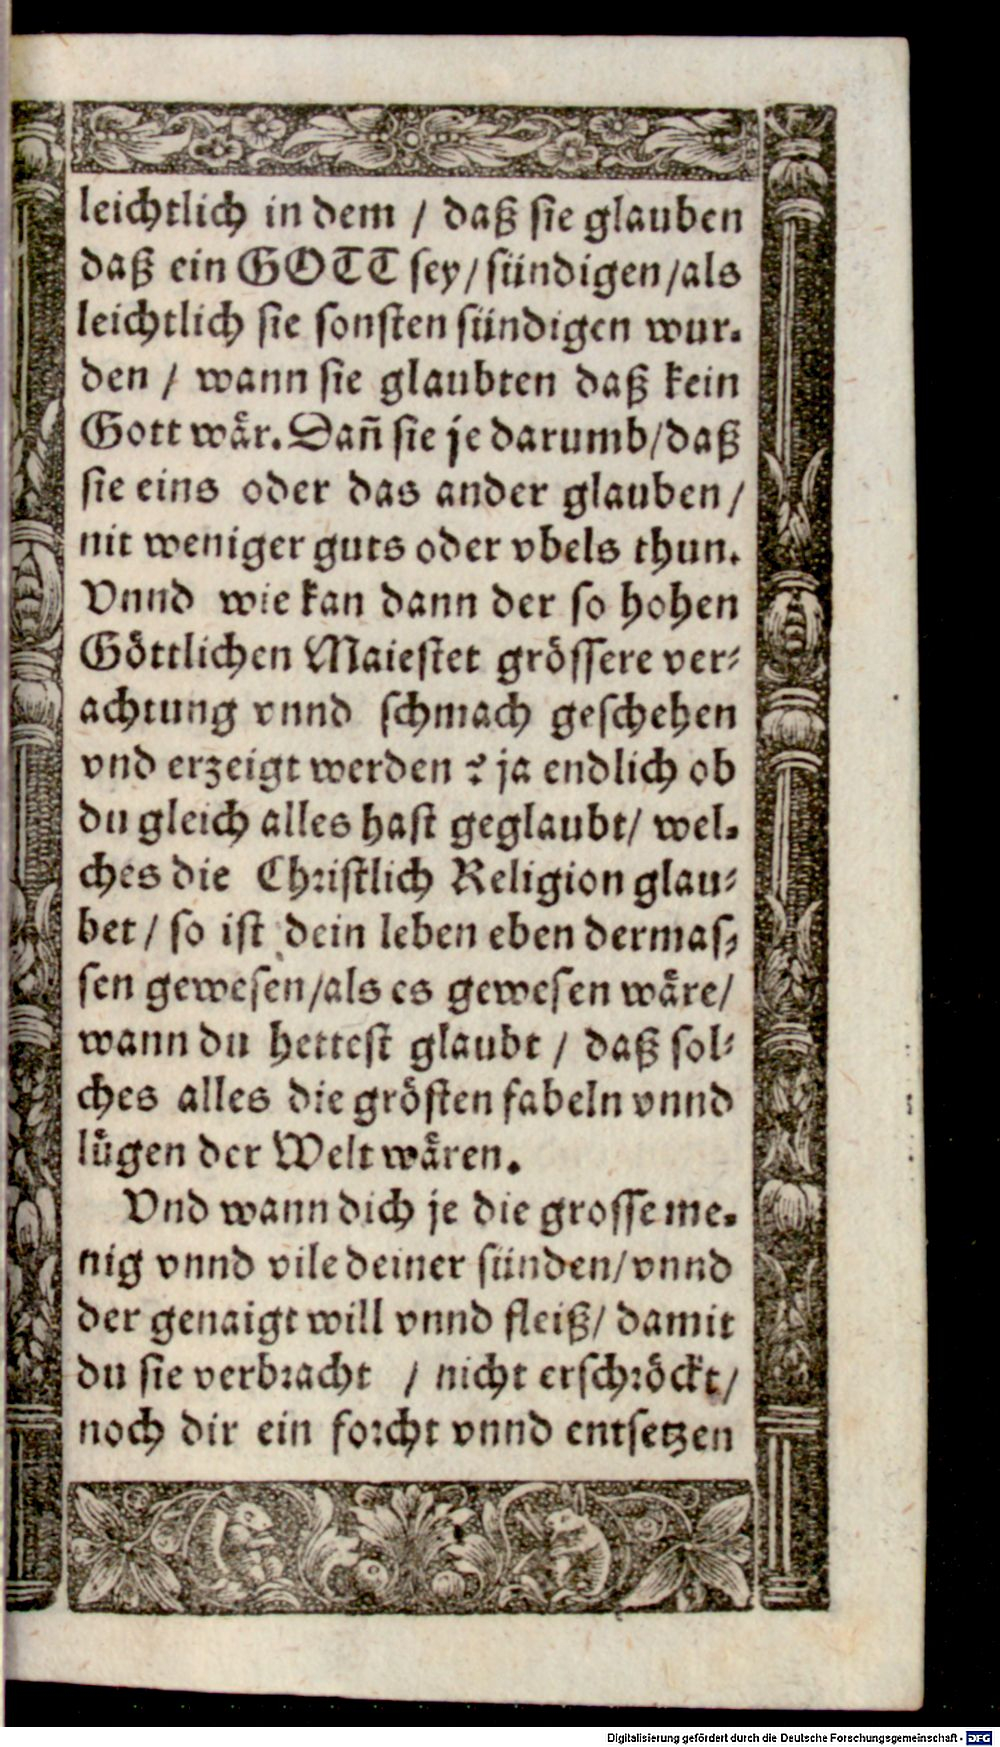 leichtlich in dem / daß sie glauben
daß ein GOTT sey / sündigen / als
leichtlich sie sonsten sündigen wur-
den / wann sie glaubten daß kein
Gott wår. Dañ sie je darumb / daß
sie eins oder das ander glauben /
nit weniger guts oder vbels thun.
Vnnd wie kan dann der so hohen
Göttlichen Maiestet grössere ver-
achtung vnnd schmach geschehen
vnd erzeigt werden ? ja endlich ob
du gleich alles hast geglaubt / wel-
ches die Christlich Religion glau-
bet / so ist dein leben eben dermas-
sen gewesen / als es gewesen wåre /
wann du hettest glaubt / daß sol-
ches alles die grösten fabeln vnnd
lügen der Welt wåren.
Vnd wann dich je die grosse me-
nig vnnd vile deiner sünden / vnnd
der genaigt will vnnd fleiß / damit
du sie verbracht / nicht erschröckt /
noch dir ein forcht vnnd entsetzen
Digitalisierung gefördert durch die Deutsche Forschungsgemeinschaft - DFG